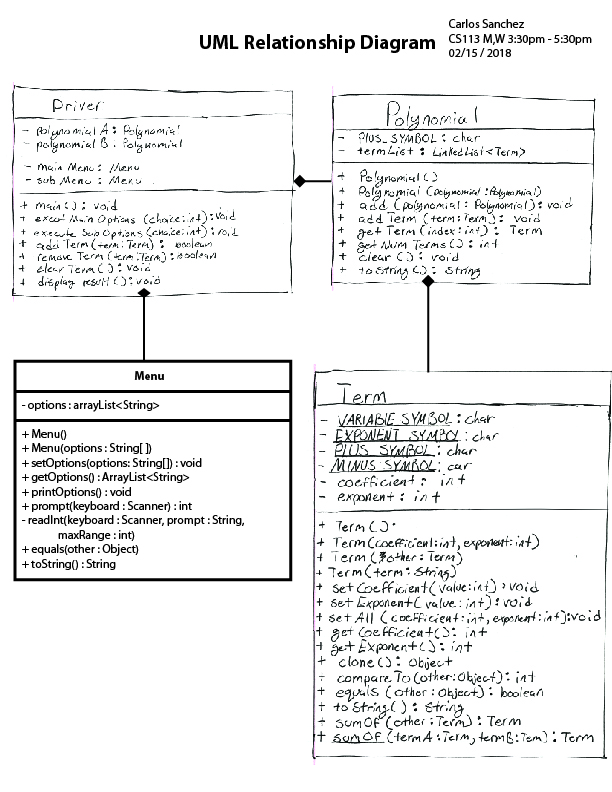 UML Relationship Diagram
Carlos Sanchez
CS113 M,W 3:30pm - 5:30pm
02/15/2018
Driver
- polynomial A : Polynomial
- polynomial B : Polynomial
- main Menu : Menu
- sub Menu : Menu
+ main() : void
+ execut Main Options (choice:int) : void
+ execute Sub Options (choice:int) : void
+ add Term (term:Term) : boolean
+ remove Term (term:Term) : boolean
+ clear Term () : void
+ display result () : void
Polynomial
- PLUS_SYMBOL : char
- termList : LinkedList<Term>
+ Polynomial ()
+ Polynomial (polynomial : Polynomial)
+ add (polynomial : Polynomial) : void
+ add Term (term : Term) : void
+ get Term (index : int) : Term
+ get Num Terms () : int
+ clear () : void
+ toString () : String
Menu
- options : arrayList<String>
+ Menu()
+ Menu(options : String[ ])
+ setOptions(options: String[]) : void
+ getOptions() : ArrayList<String>
+ printOptions() : void
+ prompt(keyboard : Scanner) : int
- readInt(keyboard : Scanner, prompt : String,
maxRange : int)
+ equals(other : Object)
+ toString() : String
Term
- VARIABLE_SYMBOL : char
- EXPONENT_SYMBOL : char
- PLUS_SYMBOL : char
- MINUS_SYMBOL : car
- coefficient : int
- exponent : int
+ Term () :
+ Term (coefficient:int, exponent:int)
+ Term (other : Term)
+ Term (term : String)
+ set Coefficient (value:int) : void
+ set Exponent (value : int) : void
+ set All (coefficient:int, exponent:int) : void
+ get Coefficient () : int
+ get Exponent () : int
+ clone () : Object
+ compare To (other:Object) : int
+ equals (other : Object) : boolean
+ to String () : String
+ sumOf (other : Term) : Term
+ sumOf (termA : Term, termB : Term) : Term